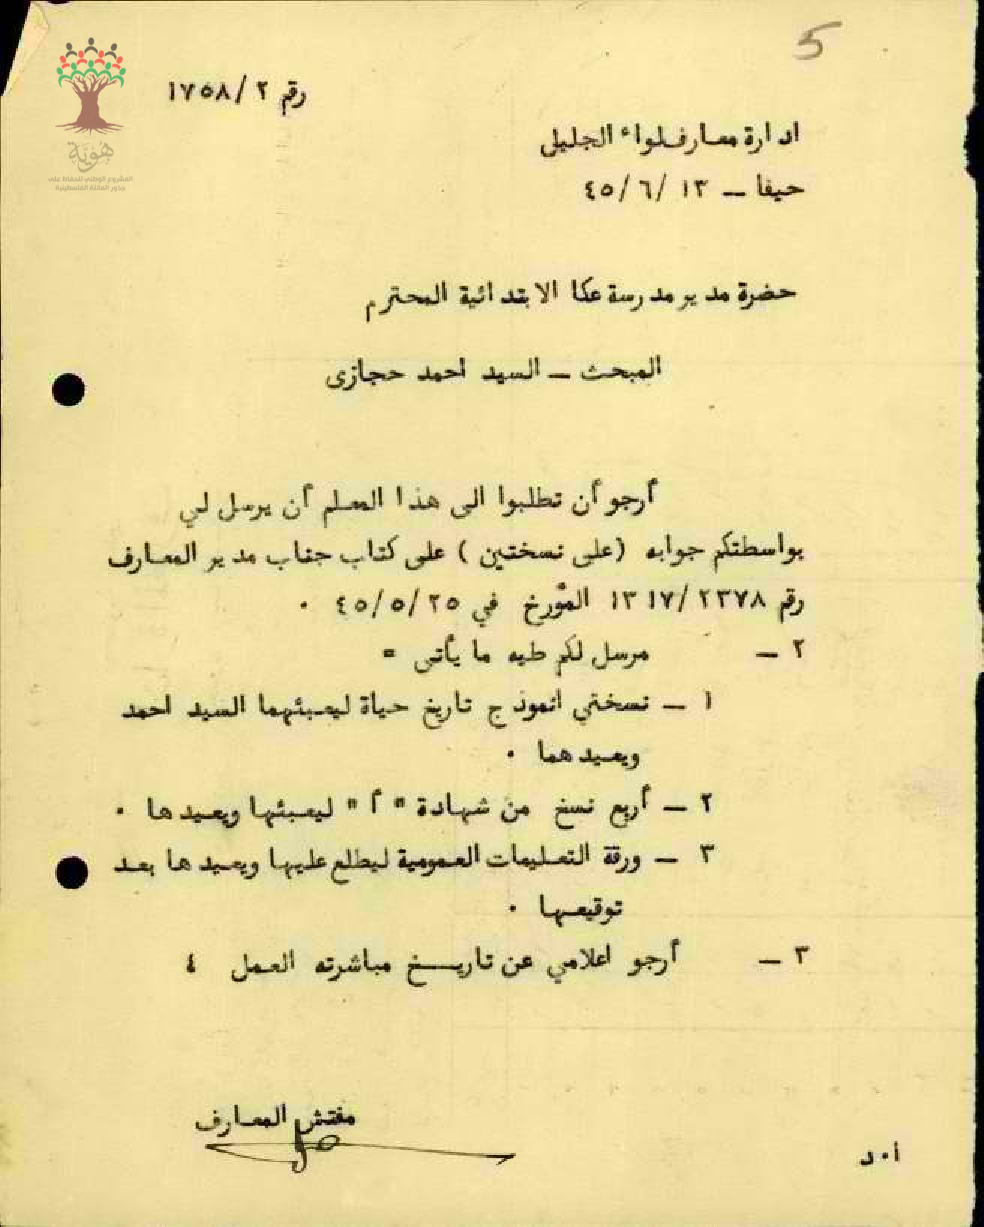 5
رقم ٢/ ١٧٥٨
ادارة معارف لواء الجليل
حيفا ــ ١٣ /٤٥/٦
حضرة مدير مدرسة عكا الابتدائية المحترم
المبحث ــ السيد احمد حجازى
أرجو أن تطلبوا الى هذا المعلم أن يرسل لي
بواسطتكم جوابه (على نسختين ) على كتاب جناب مدير المعارف
رقم ١٣١٧/٢٣٧٨ المؤرخ في ٤٥/٥/٢٥ ٠
٢ ــ مرسل لكم طيه ما يأتى =
١ ــ نسختي انموذج تاريخ حياة ليعبئهما السيد احمد
ويعيدهما ٠
٢ ــ أربع نسخ من شهادة " أ " ليعبئها ويعيدها ٠
٣ ــ ورقة التعليمات العمومية ليطلع عليها ويعيدها بعد
توقيعها ٠
٣ ــ أرجو اعلامي عن تاريــخ مباشرته العمل ٤
مفتش المعارف
أ٠د
هوية
المشروع الوطني للحفاظ على
جذور العائلة الفلسطينية